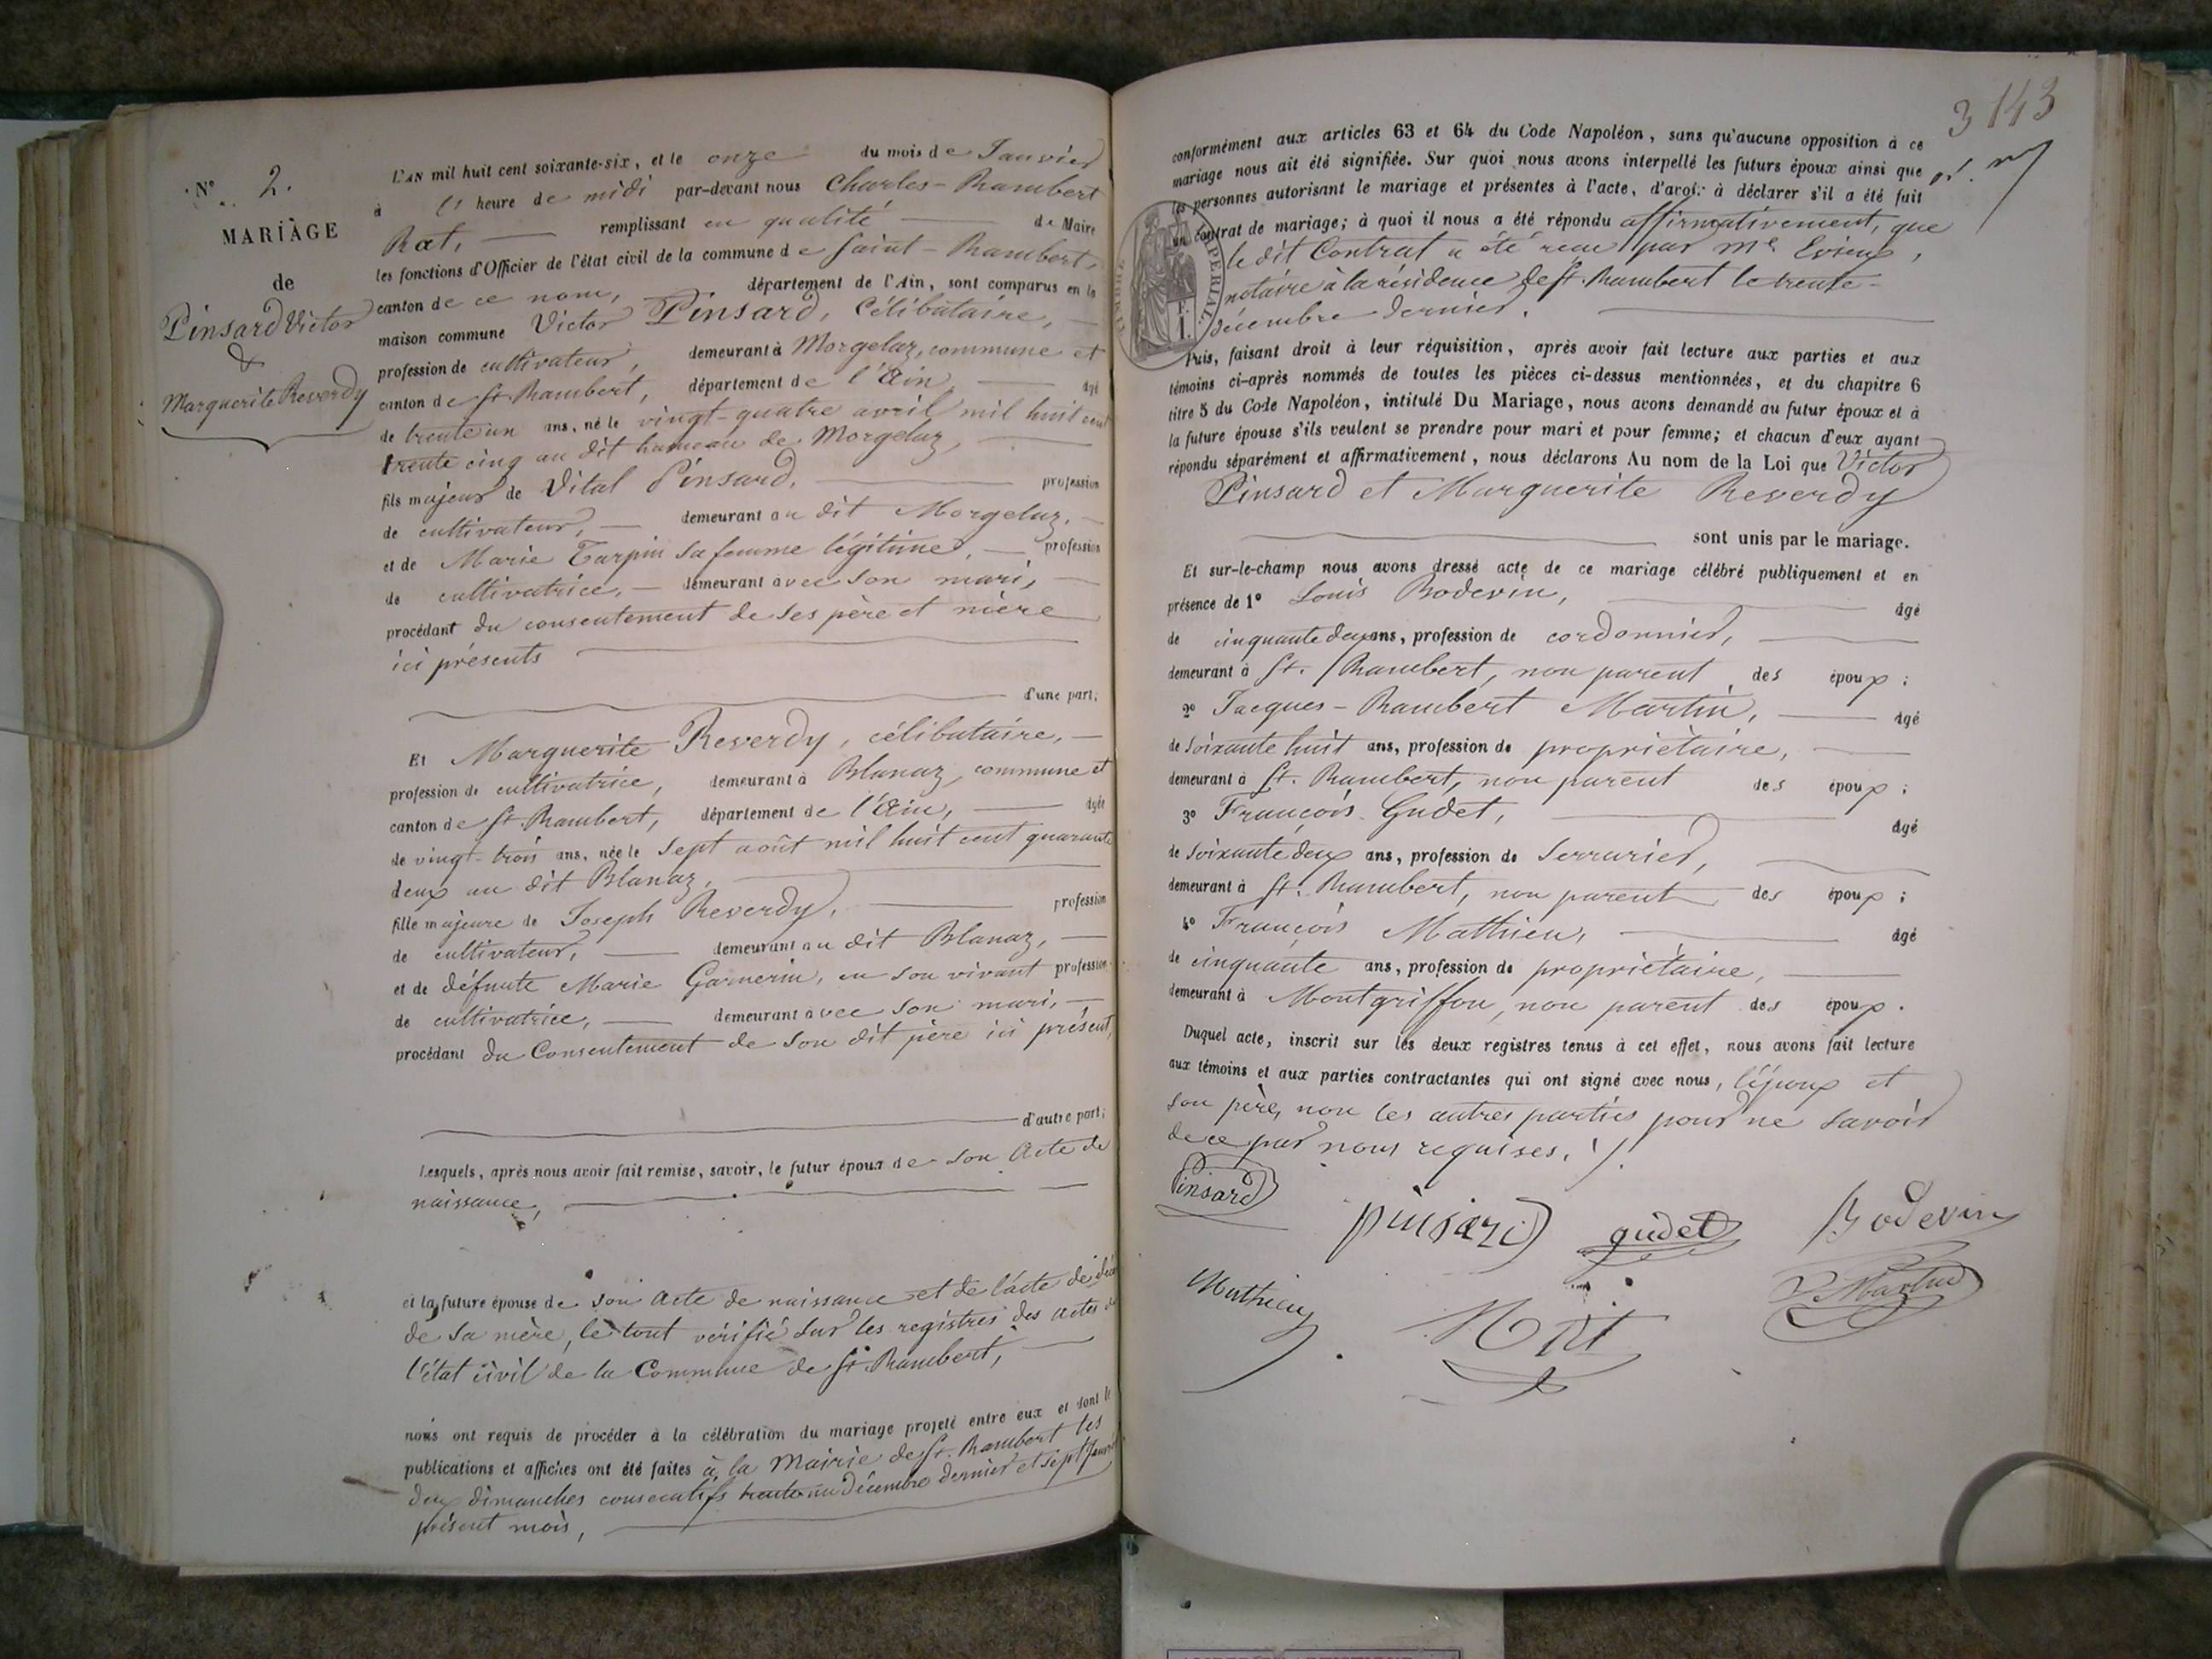 N° 2.
MARIAGE
de
Pinsard Victor
&
Marguerite Reverdy
L'AN mil huit cent soixante-six, et le onze du mois de Janvier
à heure de midi par-devant nous Charles-Rambert
Rat, remplissant en qualité de Maire
les fonctions d'Officier de l'état civil de la commune de Saint-Rambert,
canton de ce nom, département de l'Ain, sont comparus en la
maison commune Victor Pinsard, Célibataire,
profession de cultivateur, demeurant à Morgelaz, commune et
canton de St. Rambert, département de l'Ain, âgé
de trente un ans, né le vingt-quatre avril mil huit cent
trente cinq au dit hameau de Morgelaz,
fils majeur de Vital Pinsard, profession
de cultivateur, demeurant au dit Morgelaz,
et de Marie Tarpin sa femme légitime, profession
de cultivatrice, demeurant avec son mari,
procédant du consentement de ses père et mère
ici présents
d'une part;
Et Marguerite Reverdy, célibataire,
profession de cultivatrice, demeurant à Blanaz, commune et
canton de St. Rambert, département de l'Ain, âgée
de vingt-trois ans, née le sept août mil huit cent quarante
deux au dit Blanaz,
fille majeure de Joseph Reverdy, profession
de cultivateur, demeurant au dit Blanaz,
et de défunte Marie Garnerin, en son vivant profession
de cultivatrice, demeurant avec son mari,
procédant du Consentement de son dit père ici présent,
d'autre part;
Lesquels, après nous avoir fait remise, savoir, le futur époux de son Acte de
naissance,
et la future épouse de son Acte de naissance et de l'acte de décès
de sa mère, le tout vérifié sur les registres des actes de
l'état civil de la Commune de St. Rambert,
nous ont requis de procéder à la célébration du mariage projeté entre eux et dont les
publications et affiches ont été faites à la Mairie de St. Rambert les
deux dimanches consécutifs trente un Décembre dernier et sept Janvier
présent mois,
3 143
conformément aux articles 63 et 64 du Code Napoléon, sans qu'aucune opposition à ce
mariage nous ait été signifiée. Sur quoi nous avons interpellé les futurs époux ainsi que
les personnes autorisant le mariage et présentes à l'acte, d'avoir à déclarer s'il a été fait
un contrat de mariage; à quoi il nous a été répondu affirmativement, que
le dit Contrat a été reçu par Me
notaire à la résidence de St. Rambert le trente
décembre dernier.
Puis, faisant droit à leur réquisition, après avoir fait lecture aux parties et aux
témoins ci-après nommés de toutes les pièces ci-dessus mentionnées, et du chapitre 6
titre 5 du Code Napoléon, intitulé Du Mariage, nous avons demandé au futur époux et à
la future épouse s'ils veulent se prendre pour mari et pour femme; et chacun d'eux ayant
répondu séparément et affirmativement, nous déclarons Au nom de la Loi que Victor
Pinsard et Marguerite Reverdy
sont unis par le mariage.
Et sur-le-champ nous avons dressé acte de ce mariage célébré publiquement et en
présence de 1° Louis Bodevin, âgé
de cinquante deux ans, profession de cordonnier,
demeurant à St. Rambert, non parent des époux;
2° Jacques-Rambert Martin, âgé
de soixante huit ans, profession de propriétaire,
demeurant à St. Rambert, non parent des époux;
3° François Gudet, âgé
de soixante deux ans, profession de serrurier,
demeurant à St. Rambert, non parent des époux;
4° François Mathieu, âgé
de cinquante ans, profession de propriétaire,
demeurant à Montgriffon, non parent des époux.
Duquel acte, inscrit sur les deux registres tenus à cet effet, nous avons fait lecture
aux témoins et aux parties contractantes qui ont signé avec nous, l'époux et
son père, non les autres parties pour ne savoir
de ce par nous requises.
Pinsard
pinsard gudet Bodevin
Mathieu Rat Martin